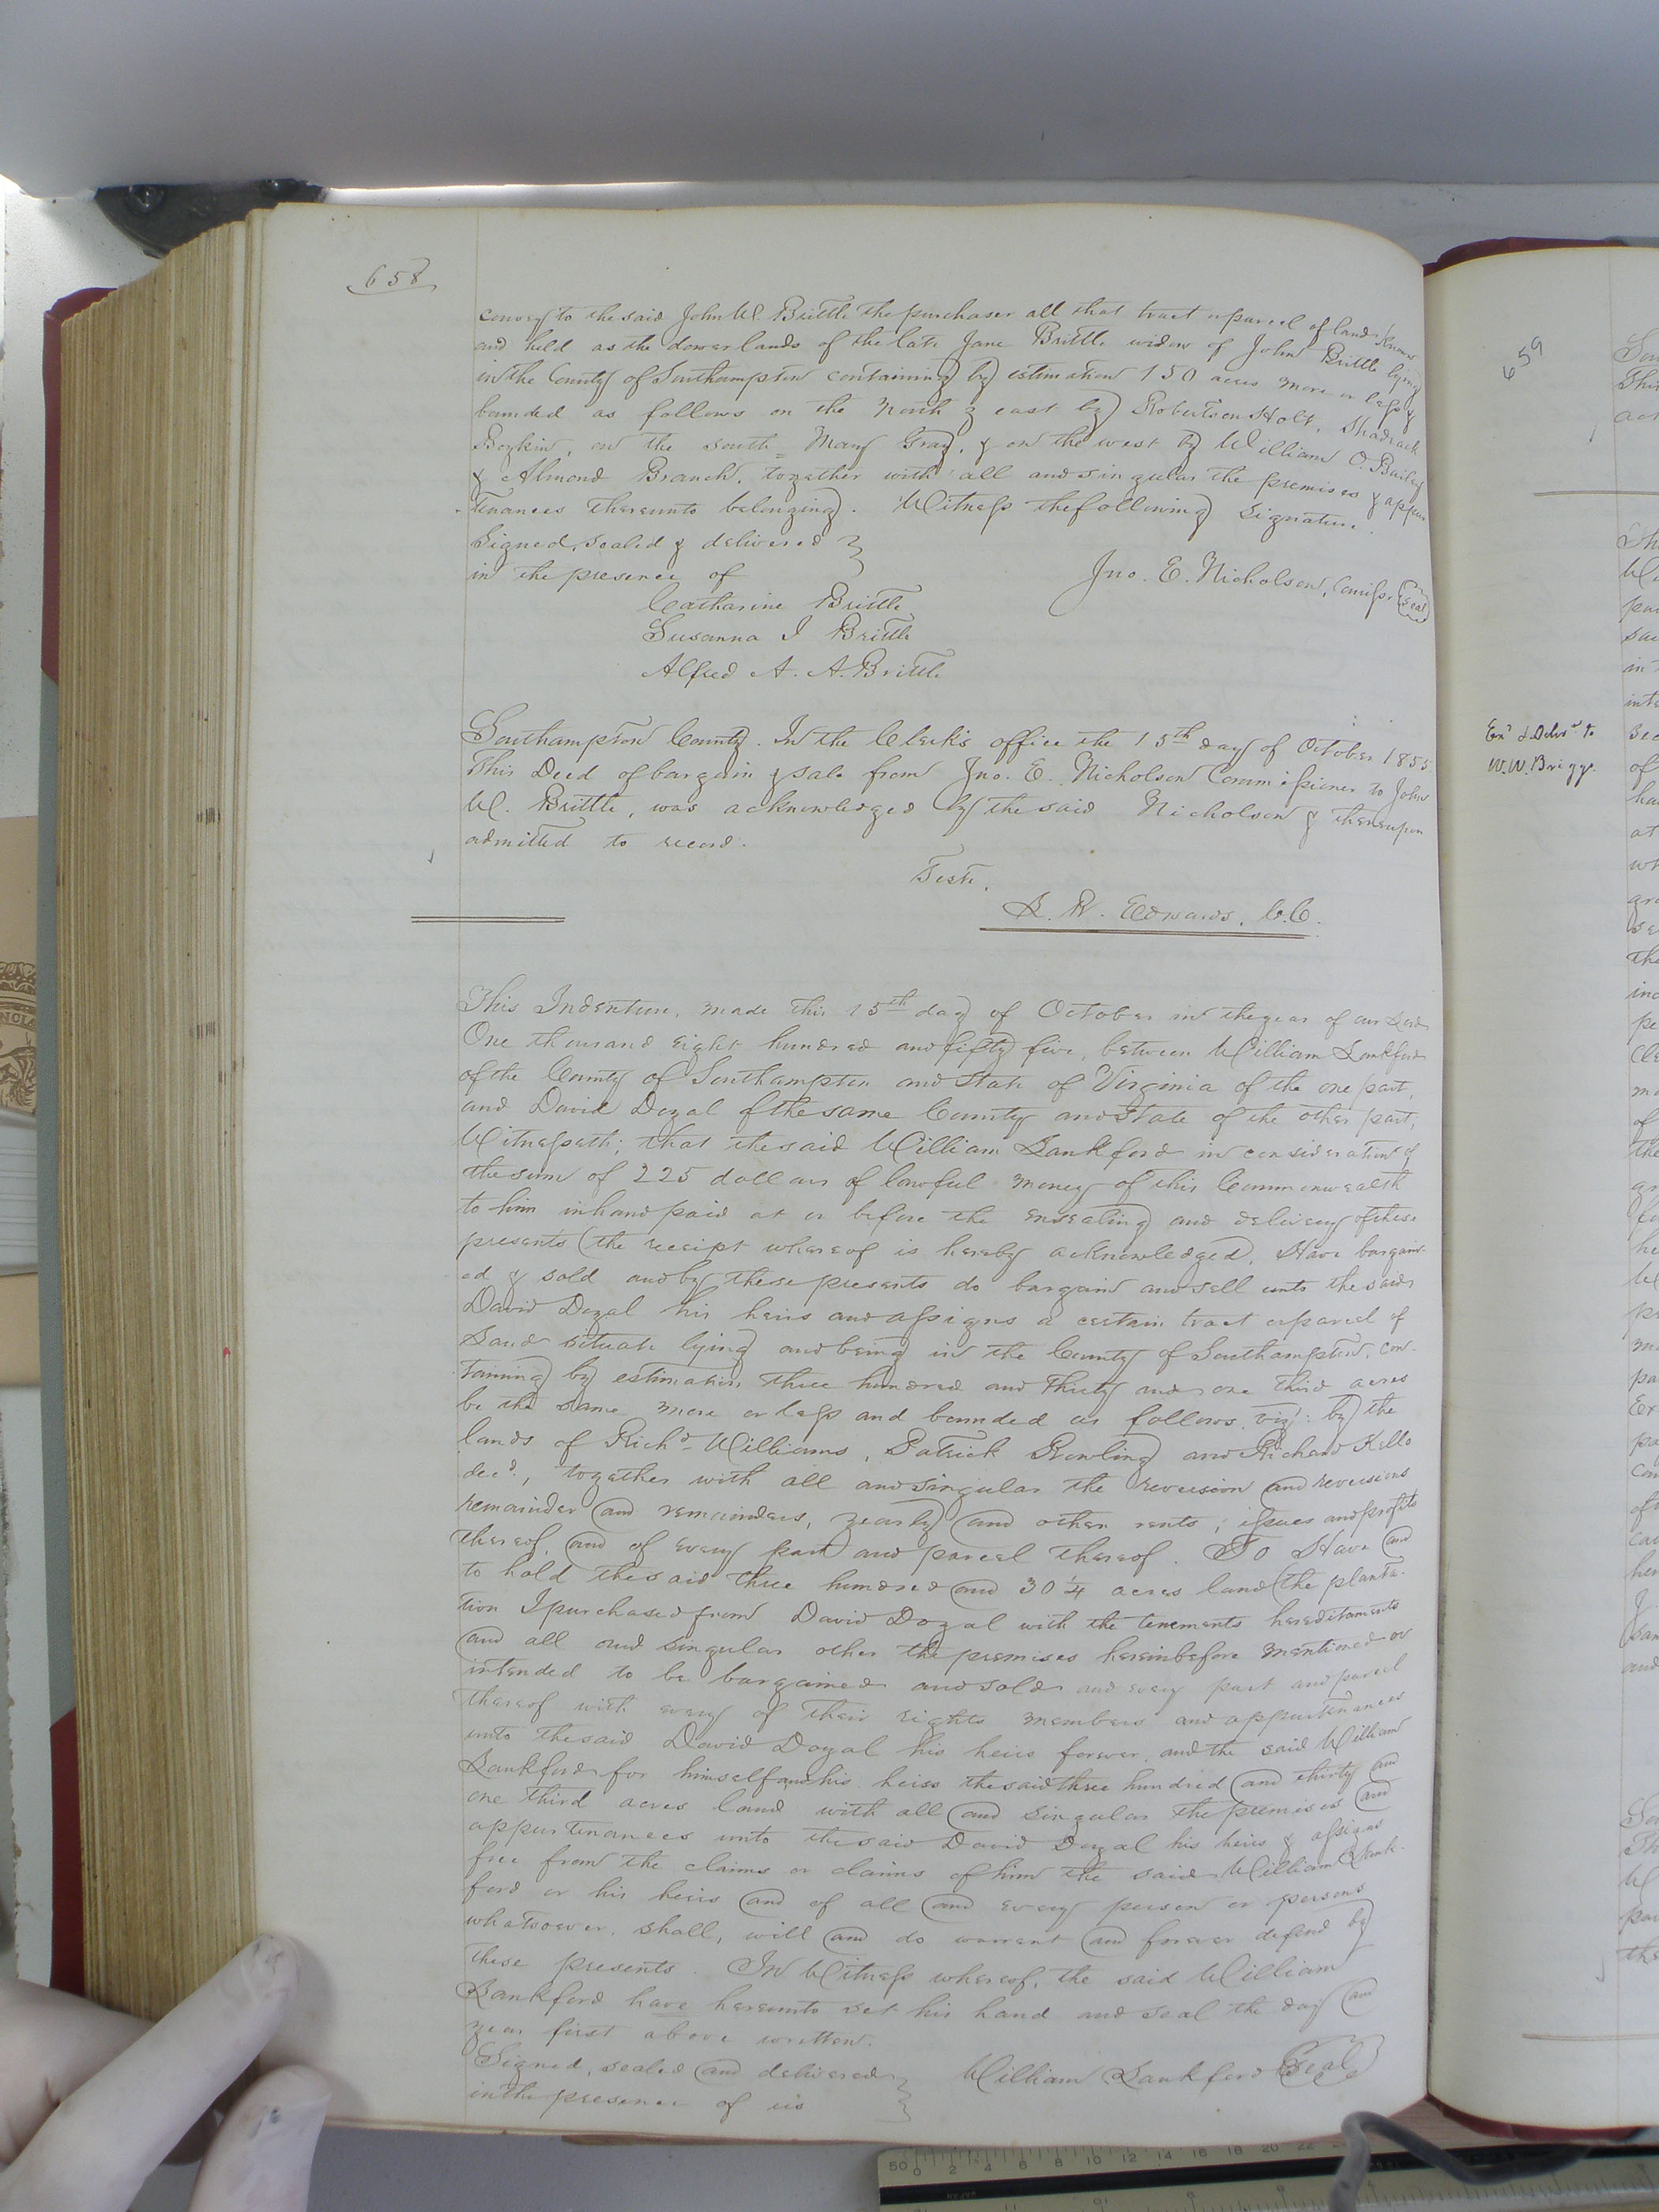 658
convey to the said John W. Brittle the purchaser all that tract or parcel of land known
and held as the dower lands of the late Jane Brittle widow of John Brittle lying
in the County of Southampton containing by estimation 150 acres more or less &
bounded as follows on the North & east by Robertson Holt, Shadrack
Boykin, on the south = Mary Gray, & on the west by William O. Bailey
& Almond Branch, together with all and singular the premises & appur
tenances thereunto belonging. Witness the following signature.
Signed, sealed & delivered
in the presence of
Jno. E. Nicholson, Comiss. Seal
Catharine Brittle
Susanna J Brittle
Alfred A. A. Brittle
Southampton County. In the Clerk's office the 15th day of October 1855
This Deed of bargain & sale from Jno. E. Nicholson Commissioner to John
W. Brittle, was acknowledged by the said Nicholson & thereupon
admitted to record.
Teste,
L. R. Edwards, C.C.
This Indenture, made this 15th day of October in the year of our Lord
One thousand eight hundred and fifty five, between William Lankford
of the County of Southampton and State of Virginia of the one part,
and David Doyal of the same County and State of the other part,
Witnesseth; that the said William Lankford in consideration of
the sum of 225 dollars of lawful money of this Commonwealth
to him in hand paid at or before the ensealing and delivery of these
presents (the receipt whereof is hereby acknowledged, Have bargain-
ed & sold and by these presents do bargain and sell unto the said
David Doyal his heirs and assigns a certain tract or parcel of
Land situate lying and being in the County of Southampton, con-
taining by estimation three hundred and thirty and one third acres
be the same more or less and bounded as follows, viz: by the
lands of Richd Williams, Patrick Rowling and Richard Kello
decd., together with all and singular the reversion and reversions
remainder and remainders, yearly and other rents; issues and profits
thereof, and of every part and parcel thereof. To Have and
to hold the said three hundred and 30 1/4 acres land (the planta-
tion I purchased from David Doyal with the tenements hereditaments
and all and singular other the premises hereinbefore mentioned or
intended to be bargained and sold and every part and parcel
thereof with every of their rights members and appurtenances
unto the said David Doyal his heirs forever, and the said William
Lankford for himself and his heirs the said three hundred and thirty and
one third acres land with all and singular the premises and
appurtenances unto the said David Doyal his heirs & assigns
free from the claims or claims of him the said William Lank-
ford or his heirs and of all and every person or persons
whatsoever, shall, will and do warrant and forever defend by
these presents. In Witness whereof, the said William
Lankford have hereunto set his hand and seal the day and
year first above written.
Signed, sealed and delivered
in the presence of us
William Lankford Seal
659
Exd & Delvd to
W. W. Briggs.